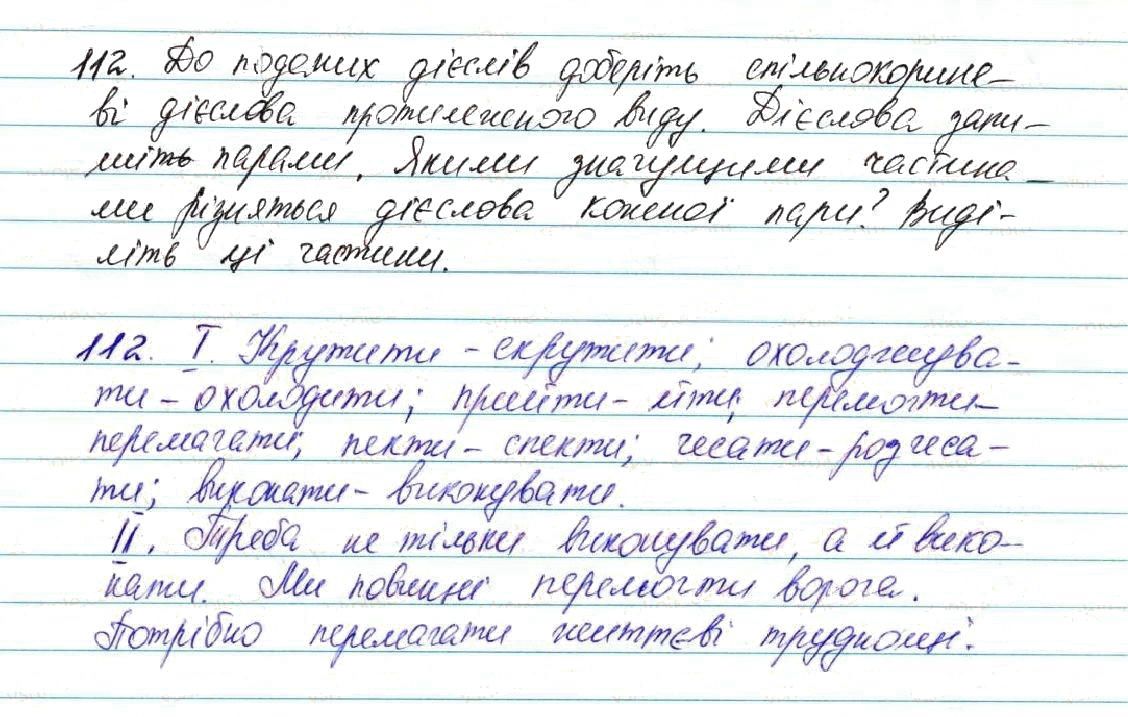 112. До поданих дієслів доберіть спільнокорене-
ві дієслова протилежного виду. Дієслова запи-
шіть парами. Якими значущими частина-
ми різняться дієслова кожної пари? Виді-
літь ці частини.
112. I. Кружити - скружити; охолоджува-
ти - охолодити; прийти - йти; перемогти -
перемагати; пекти - спекти; чесати - розчеса-
ти; виконати - виконувати.
II. Треба не тільки виконувати, а й вико-
нати. Ми повинні перемогти ворога.
Потрібно перемагати життєві труднощі.